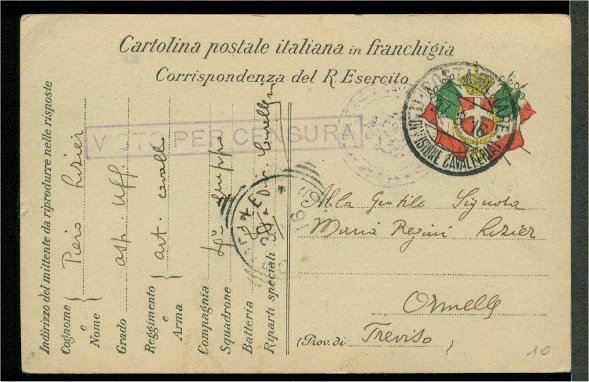 Cartolina postale italiana in franchigia
Corrispondenza del R. Esercito
VISTO PER CENSURA
POSTA MILITARE
DIVISIONE CAVALLERIA
16
Indirizzo del mittente da riprodurre nelle risposte
Cognome e Nome { Piero Lizier
Grado asp. Uff.
Reggimento e Arma { art. cavall
Compagnia
Squadrone
Batteria
4° Gruppo
Riparti speciali 3a Div. Cavalleria
Alla Gentile Signora
Maria Regini Lizier
Ormelle
(Prov. di Treviso)
10